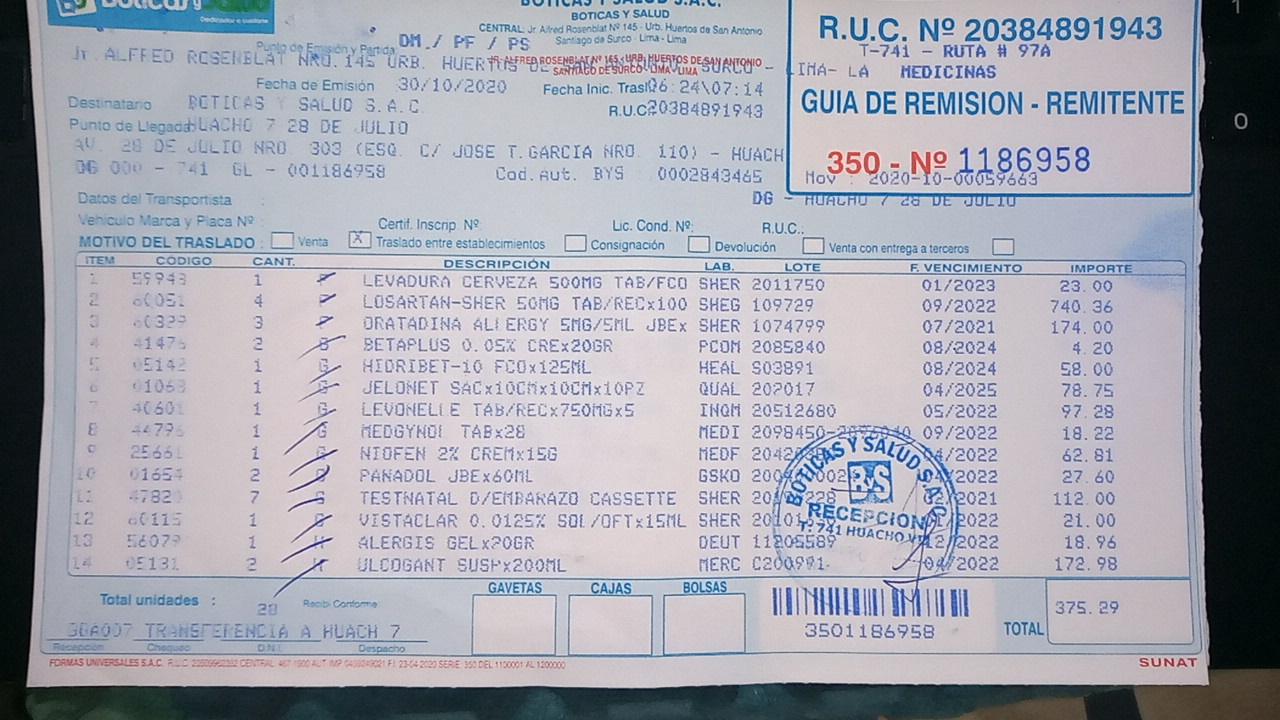 BOTICAS Y SALUD S.A.C.
BOTICAS Y SALUD
CENTRAL: Jr. Alfred Rosenblat Nº 145 - Urb. Huertos de San Antonio
Santiago de Surco - Lima - Lima
Dedicados a cuidarte
R.U.C. Nº 20384891943
T-741 - RUTA # 97A
MEDICINAS
GUIA DE REMISION - REMITENTE
350 - Nº 1186958
Mov : 2020-10-00059663
Punto de Emisión y Partida DM / PF / PS
Jr. ALFRED ROSENBLAT NRO. 145 URB. HUERTOS DE SURCO - LIMA- LA
JR. ALFRED ROSENBLAT Nº 145 - URB. HUERTOS DE SAN ANTONIO
SANTIAGO DE SURCO - LIMA - LIMA
Fecha de Emisión 30/10/2020 Fecha Inic. Trasl. 06:24\07:14
Destinatario BOTICAS Y SALUD S.A.C. R.U.C. 20384891943
Punto de Llegada HUACHO 7 28 DE JULIO
AV. 28 DE JULIO NRO. 303 (ESQ. C/ JOSE T.GARCIA NRO. 110) - HUACH
DG 000 - 741 GL - 001186958 Cod.Aut. BYS 0002843465
DG - HUACHO 7 28 DE JULIO
Datos del Transportista :
Vehículo Marca y Placa Nº : Certif. Inscrip. Nº: Lic. Cond. Nº: R.U.C.:
MOTIVO DEL TRASLADO : Venta X Traslado entre establecimientos Consignación Devolución Venta con entrega a terceros
ITEM CÓDIGO CANT. DESCRIPCIÓN LAB. LOTE F. VENCIMIENTO IMPORTE
1 59943 1 F LEVADURA CERVEZA 500MG TAB/FCO SHER 2011750 01/2023 23.00
2 60051 4 F LOSARTAN-SHER 50MG TAB/RECx100 SHEG 109729 09/2022 740.36
3 60329 3 F ORATADINA ALLERGY 5MG/5ML JBEx SHER 1074799 07/2021 174.00
4 41476 2 G BETAPLUS 0.05% CREx20GR PCOM 2085840 08/2024 4.20
5 05142 1 G HIDRIBET-10 FCOx125ML HEAL S03891 08/2024 58.00
6 01063 1 G JELONET SACx10CMx10CMx10PZ QUAL 202017 04/2025 78.75
7 40601 1 G LEVONELLE TAB/RECx750MGx5 INQM 20512680 05/2022 97.28
8 44796 1 G MEDGYNOL TABx28 MEDI 2098450- 09/2022 18.22
9 25661 1 G NIOFEN 2% CREMx15G MEDF /2022 62.81
10 01654 2 G PANADOL JBEx60ML GSKO /2022 27.60
11 47820 7 G TESTNATAL D/EMBARAZO CASSETTE SHER /2021 112.00
12 60115 1 G VISTACLAR 0.0125% SOL/OFTx15ML SHER /2022 21.00
13 56079 1 H ALERGIS GELx20GR DEUT 11205589 12/2022 18.96
14 05131 2 H ULCOGANT SUSPx200ML MERC C200991- 04/2022 172.98
BOTICAS Y SALUD S.A.C.
BS
RECEPCION
T: 741 HUACHO VII
Total unidades : 28 Recibí Conforme GAVETAS CAJAS BOLSAS
3501186958
TOTAL 375.29
30A007 TRANSFERENCIA A HUACH 7
Recepción Chequeo D.N.I. Despacho
SUNAT